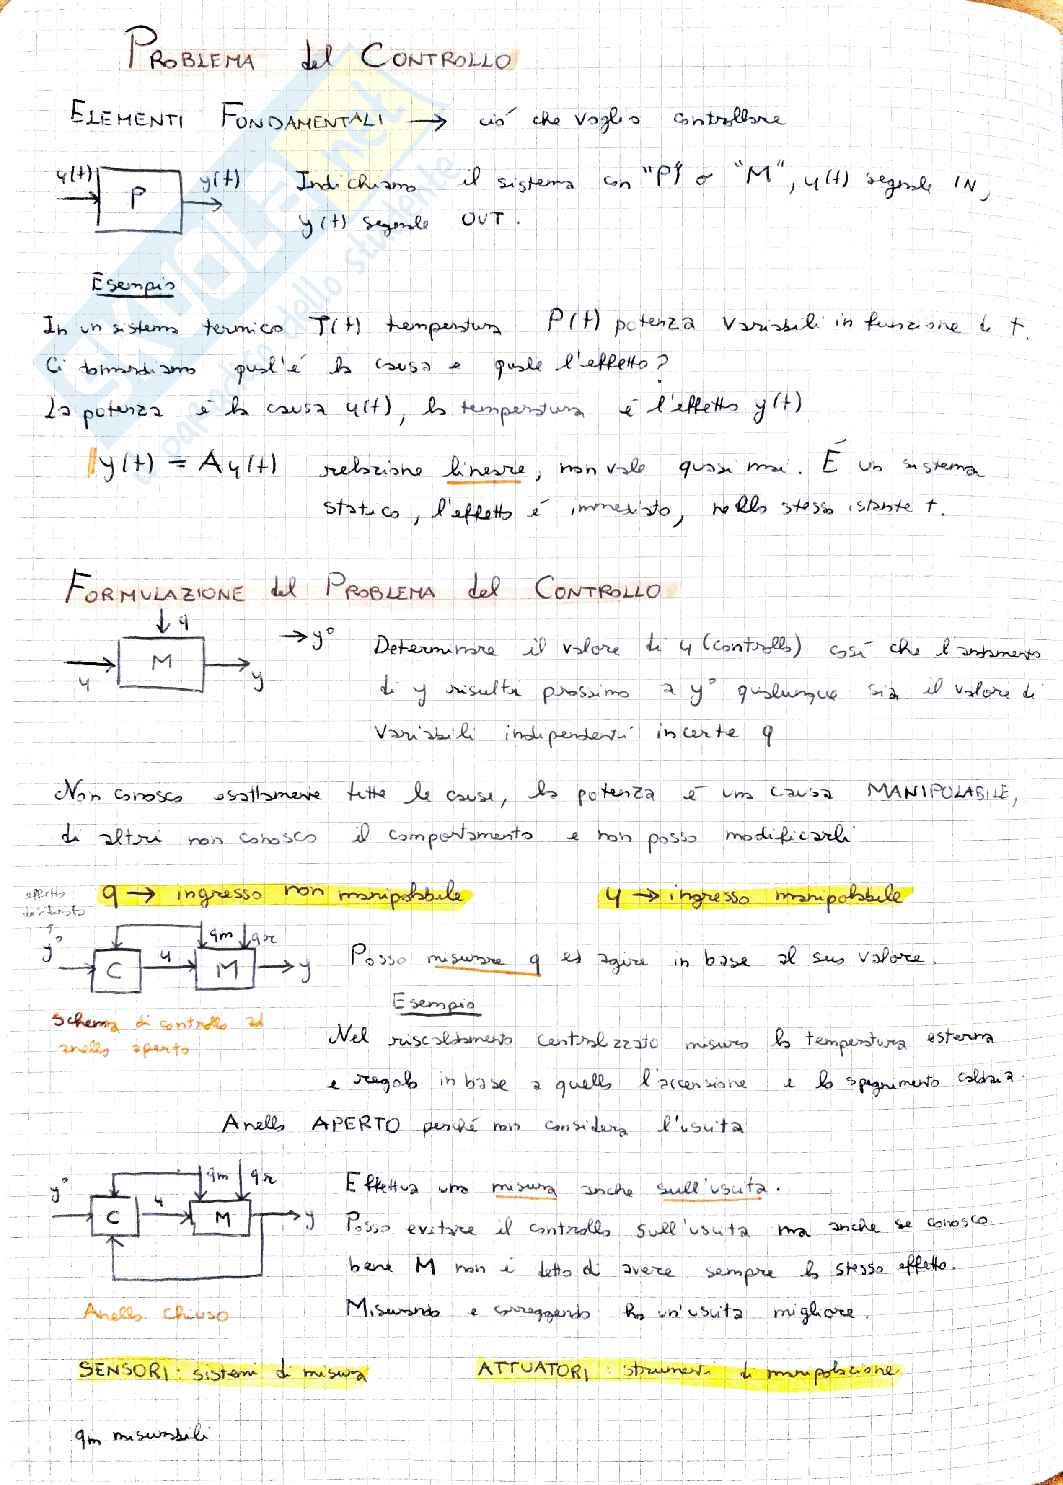 PROBLEMA del CONTROLLO
ELEMENTI FONDAMENTALI → ciò che voglio controllare
u(t) P y(t) Indichiamo il sistema con "P" o "M", u(t) segnale IN,
y(t) segnale OUT.
Esempio
In un sistema termico T(t) temperatura P(t) potenza variabili in funzione di t.
Ci domandiamo qual'è la causa e quale l'effetto?
La potenza è la causa u(t), la temperatura è l'effetto y(t)
y(t) = A u(t) relazione lineare, non vale quasi mai. È un sistema
statico, l'effetto è immediato, nello stesso istante t.
FORMULAZIONE del PROBLEMA del CONTROLLO
q
u M y → y° Determinare il valore di u (controllo) così che l'andamento
di y risulti prossimo a y° qualunque sia il valore di
variabili indipendenti incerte q
Non conosco esattamente tutte le cause, la potenza è una causa MANIPOLABILE,
di altri non conosco il comportamento e non posso modificarli
q → ingresso non manipolabile u → ingresso manipolabile
effetto desiderato
qm qr
y° C u M y Posso misurare q ed agire in base al suo valore.
Esempio
Schema di controllo ad
anello aperto
Nel riscaldamento centralizzato misuro la temperatura esterna
e regolo in base a quello l'accensione e lo spegnimento caldaia.
Anello APERTO perché non considera l'uscita
qm qr
y° C u M y Effettua una misura anche sull'uscita.
Posso evitare il controllo sull'uscita ma anche se conosco
bene M non è detto di avere sempre lo stesso effetto.
Anello chiuso Misurando e correggendo ho un'uscita migliore.
SENSORI: sistemi di misura ATTUATORI: strumenti di manipolazione
qm misurabili
SKUOLA.net
paradiso dello studente